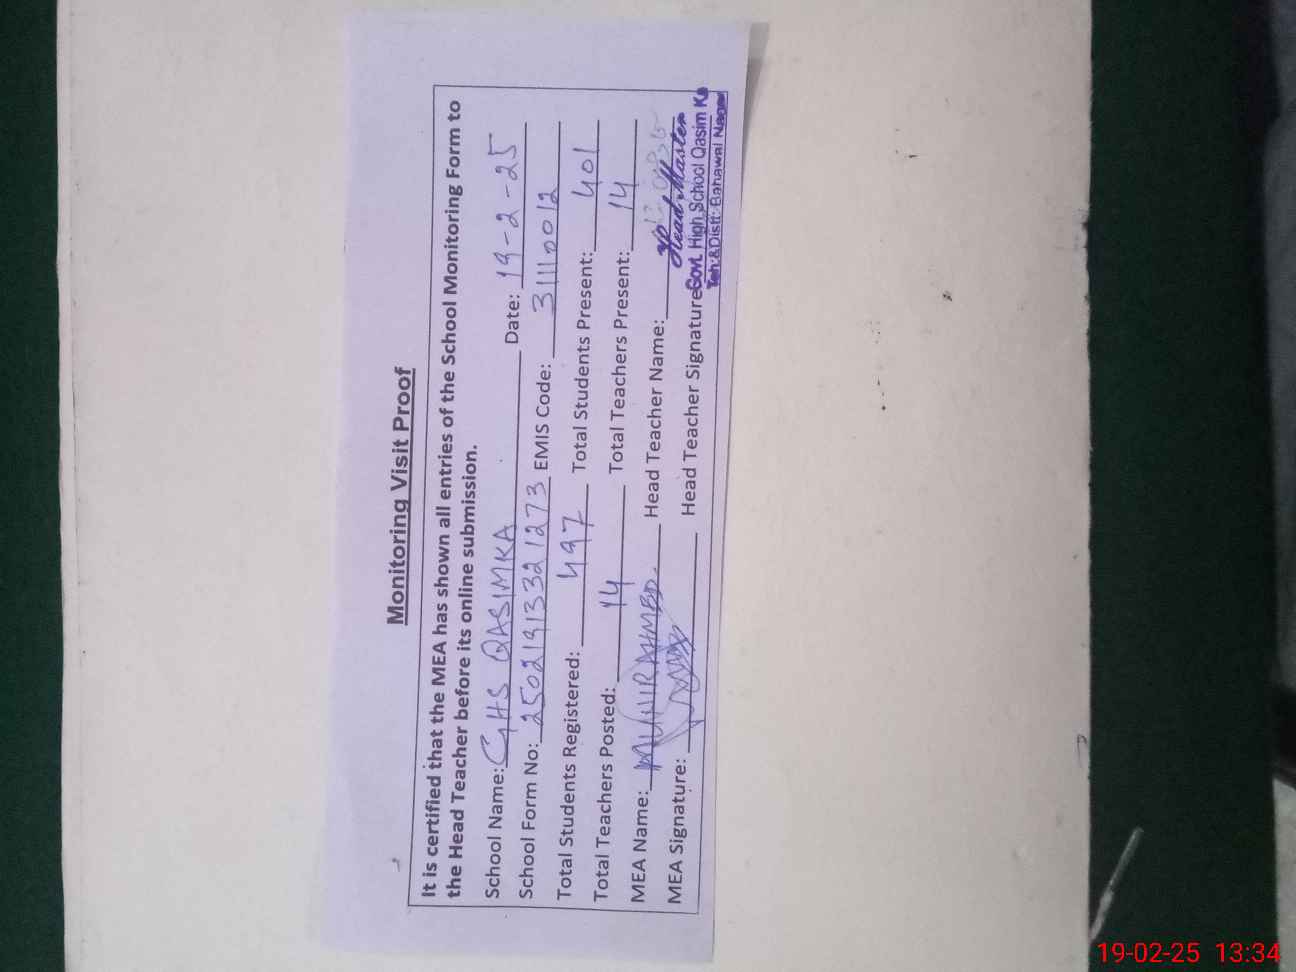 Monitoring Visit Proof
It is certified that the MEA has shown all entries of the School Monitoring Form to
the Head Teacher before its online submission.
School Name: GHS QASIMKA Date: 19-2-25
School Form No: 25021913321273 EMIS Code: 31110012
Total Students Registered: 497 Total Students Present: 401
Total Teachers Posted: 14 Total Teachers Present: 14
MEA Name: MUNIR AHMED. Head Teacher Name:
MEA Signature: Head Teacher Signature
Head Master
Govt. High School Qasim Ka
Teh: & Distt: Bahawal Nagar
19-02-25 13:34